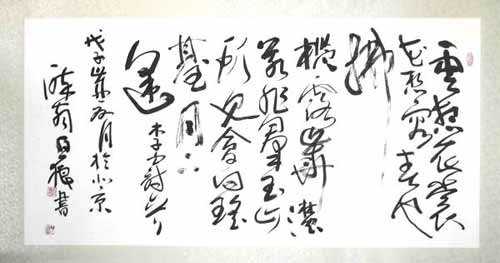 雲想衣裳
花想容春风
拂
槛露華濃
若非群玉山
頭見會向瑶
臺月下
逢 李白詩
戊子歲夏月於北京
書